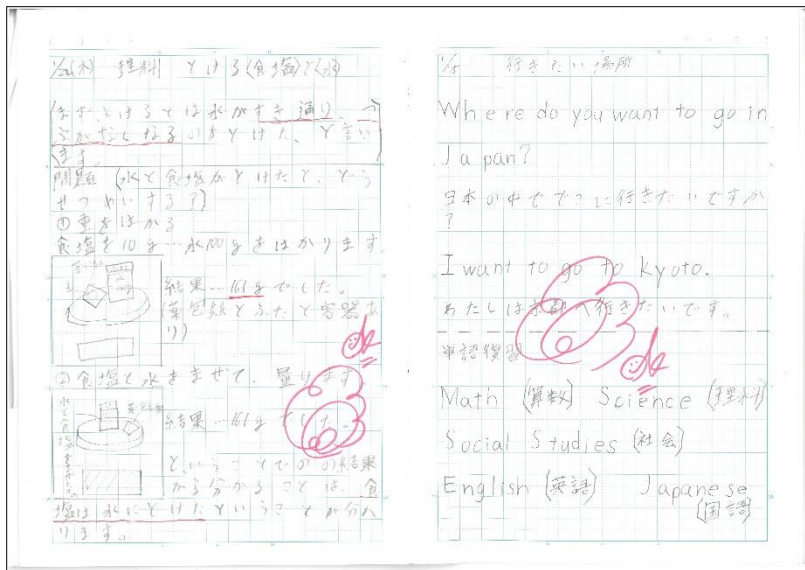 理科 とける(食塩)と(水)
(まず、とけるとは水がすき通り、つ
ぶがなくなるいまとけた、と言い
ます。
問題 (水と食塩がとけたと、どう
せつめいする?)
①重をはかる
食塩を10g…水100gをはかります。
結果…161gでした。
(薬包紙とふたと容器あ
り)
②食塩と水をまぜて、量ります
結果…161gでした。
ということで①②の結果
から分かることは、食
塩は水にとけたということが分か
ります。
1/5 行きたい場所
Where do you want to go in
Japan?
日本の中でどこに行きたいですか
?
I want to go to kyoto.
わたしは京都へ行きたいです。
単語復習
Math (算数) Science (理科)
Social Studies (社会)
English (英語) Japanese
(国語)